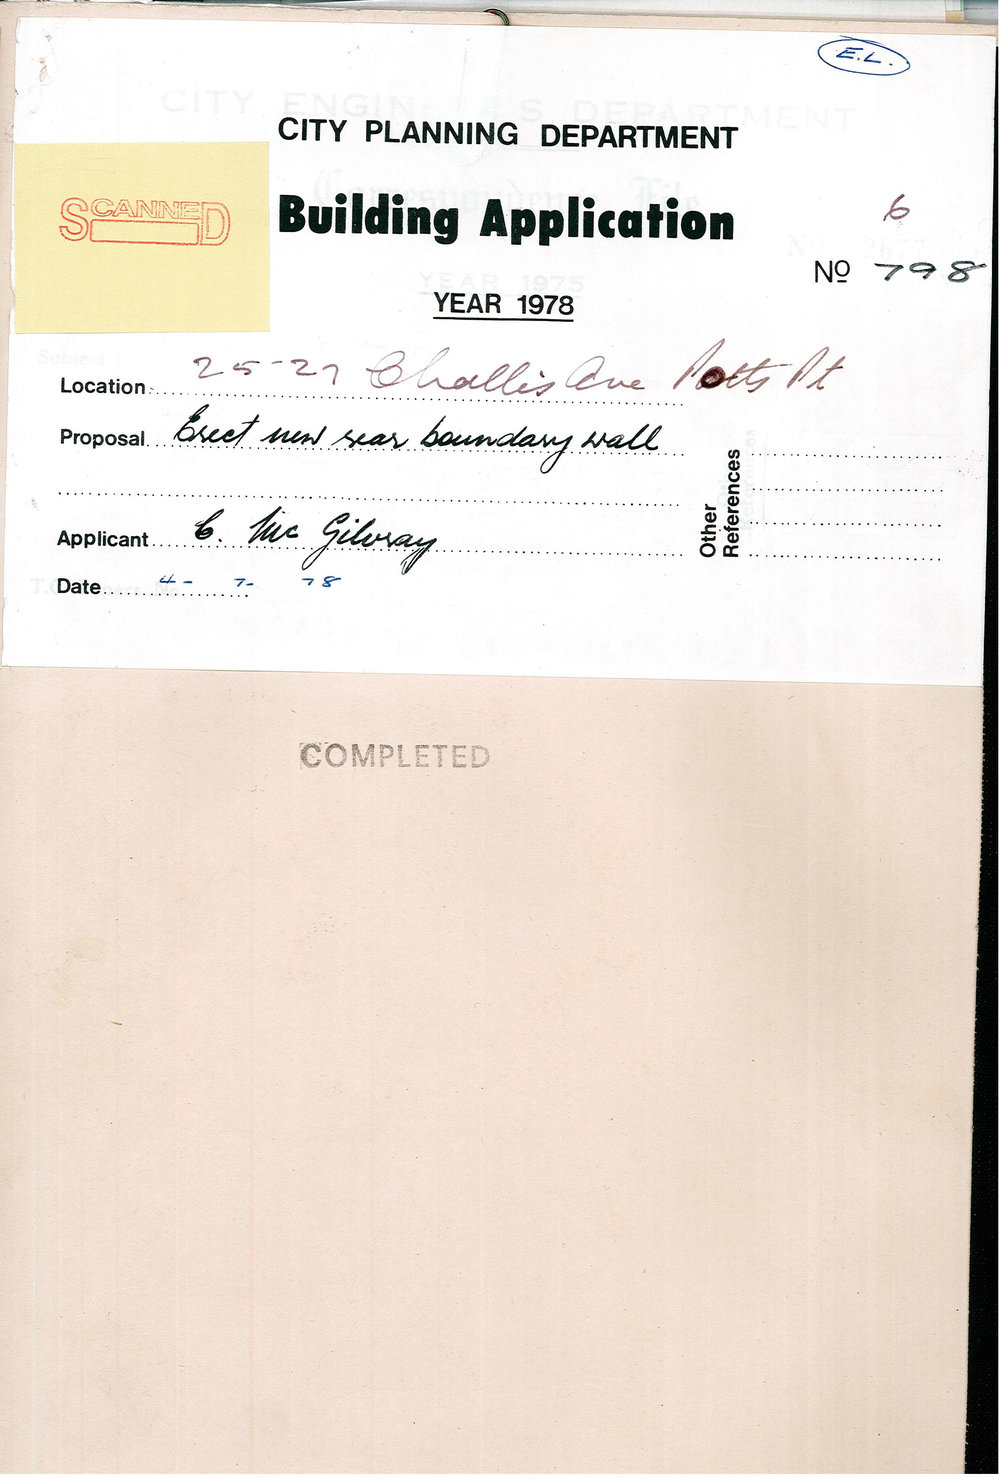 E.L.
CITY ENGINEERS DEPARTMENT
CITY PLANNING DEPARTMENT
Correspondence File
SCANNED
Building Application
6
No 798
YEAR 1975
YEAR 1978
Subject
Location 25-27 Challis Ave Potts Pt
Proposal Erect new rear boundary wall
Other References
Applicant C. Mc Gilvray
Date 4 - 7 - 78
COMPLETED